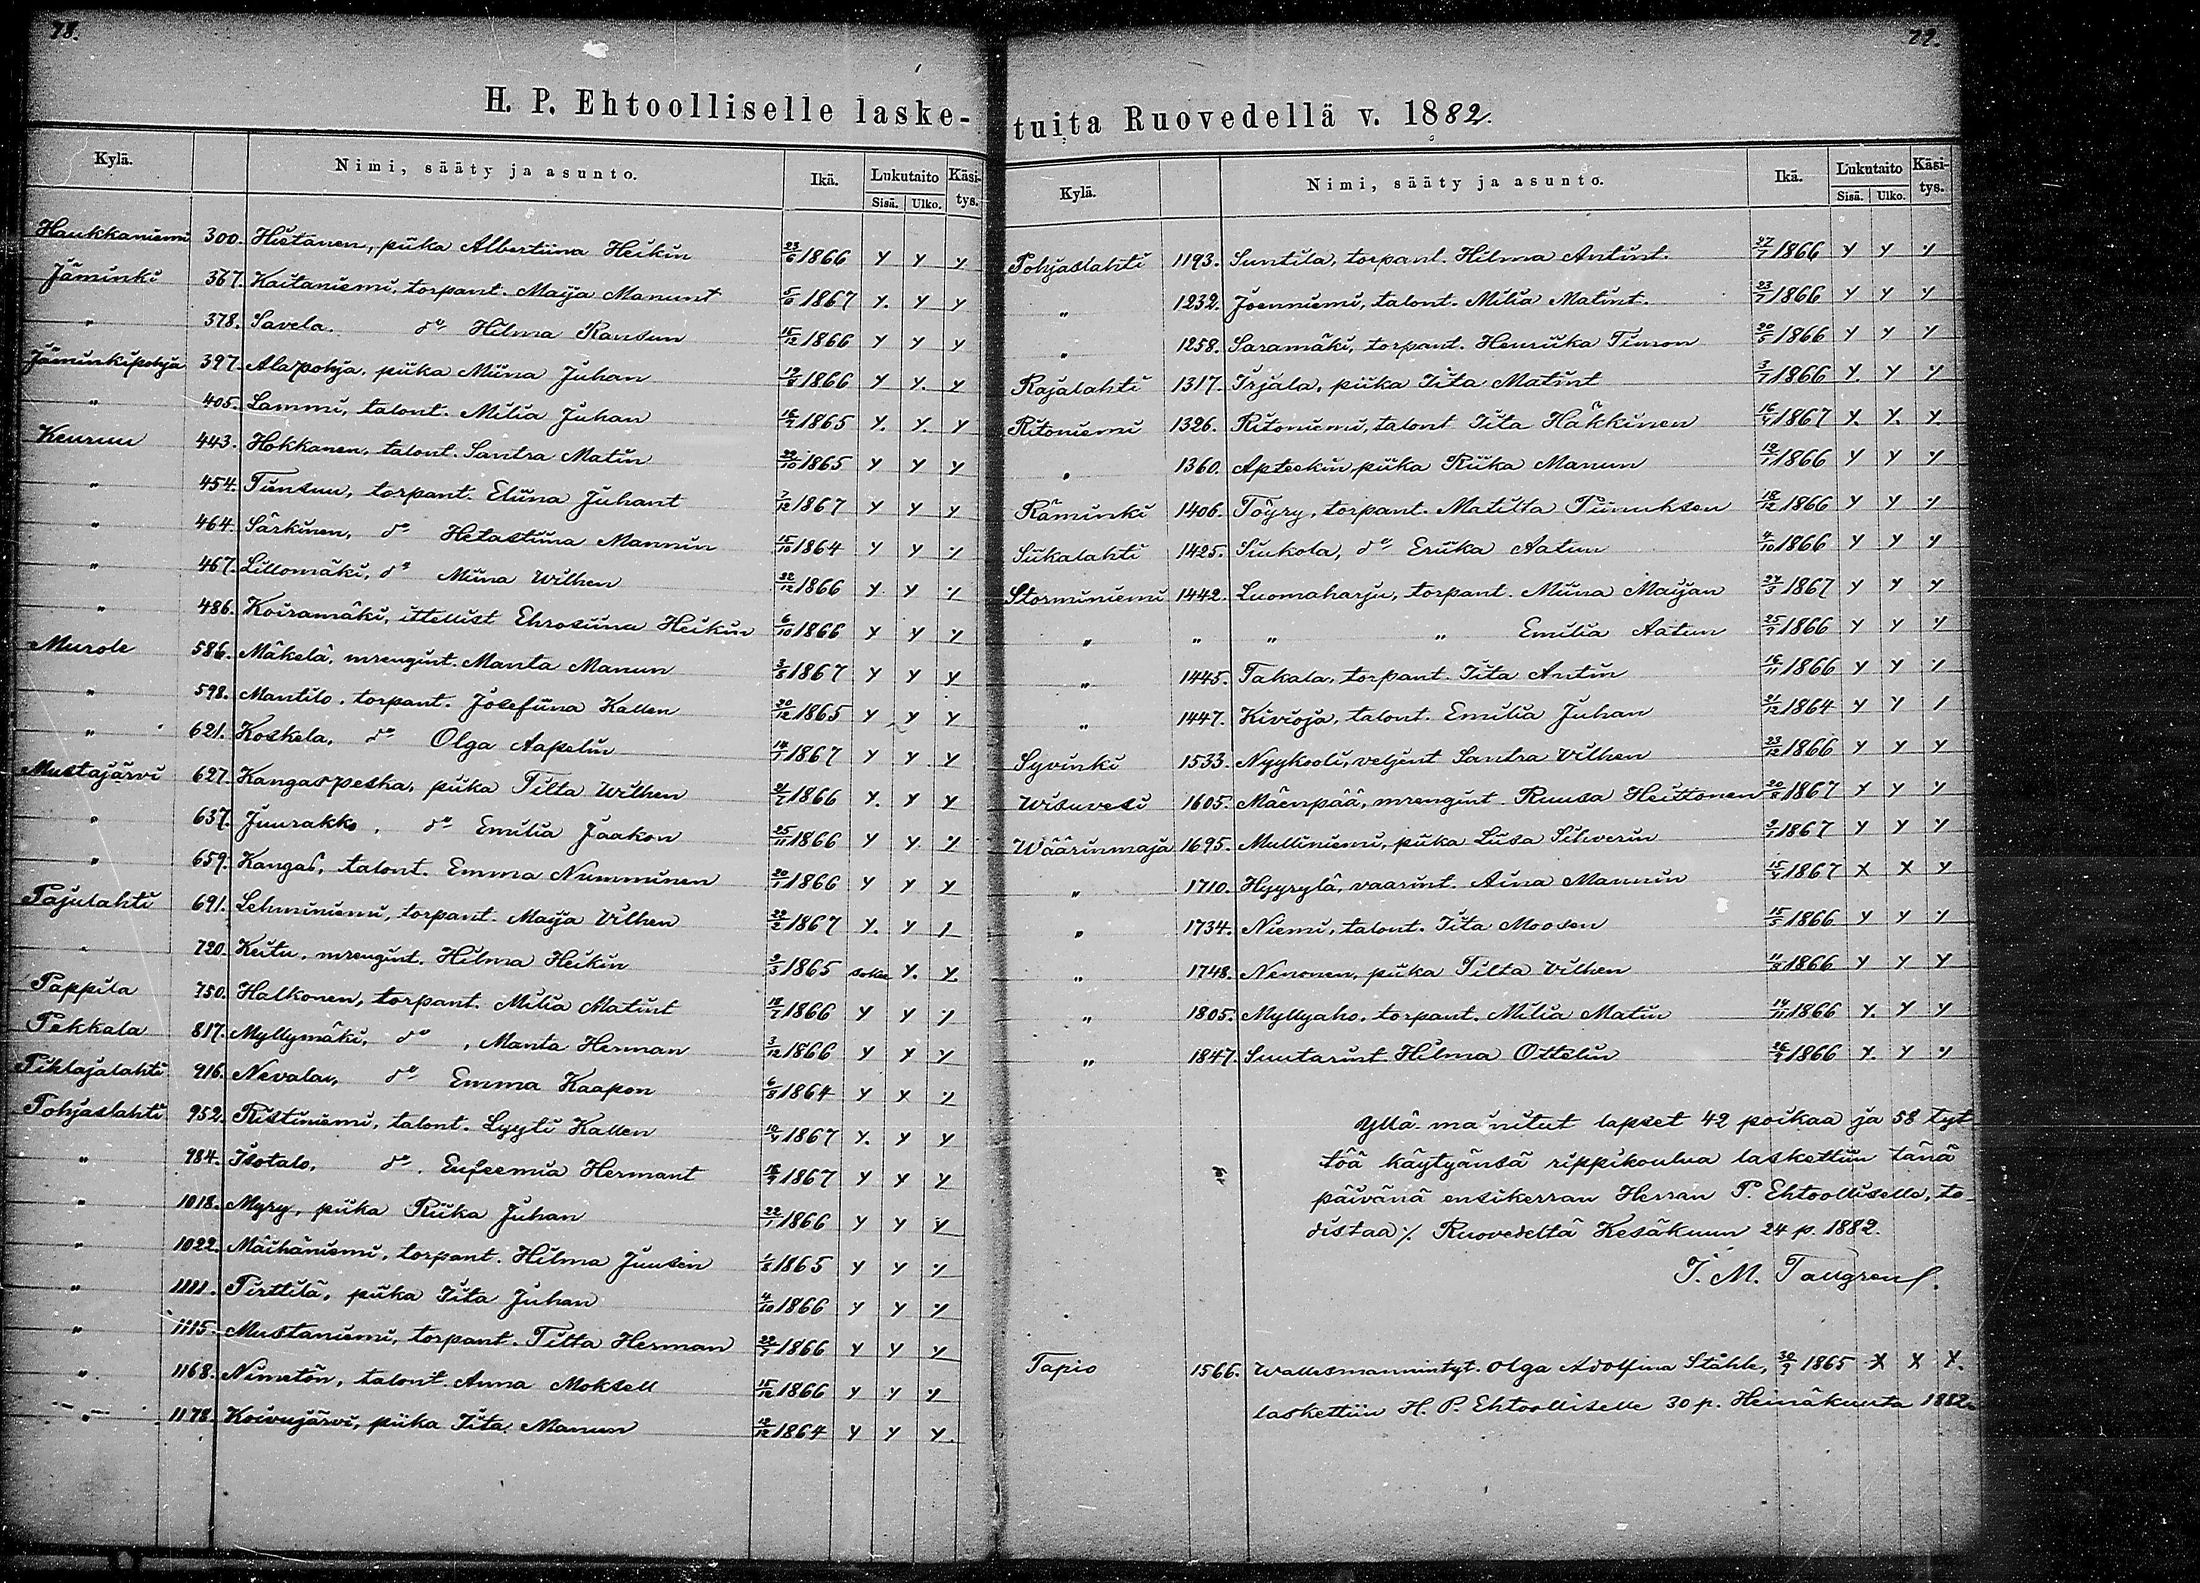 78.
H. P. Ehtoolliselle laske-
Kylä. Nimi, sääty ja asunto. Ikä. Lukutaito Käsi-
Sisä. Ulko. tys.
Haukkaniemi 300. Hietanen, piika Albertiina Heikin 23/6 1866 y y y
Jäminki 367. Kaitaniemi, torpant. Maija Manunt 5/6 1867 y. y y
" 378. Savela. d:o Hilma Ransun 15/12 1866 y y y
Jäminkipohja 397. Alapohja, piika Miina Juhan 19/8 1866 y y. y
" 405. Lammi, talont. Milia Juhan 16/2 1865 y. y. y
Keuruu 443. Hokkanen, talont. Santra Matin 29/10 1865 y y y
" 454. Tiensuu, torpant. Eliina Juhant 7/12 1867 y y y
" 464. Särkinen, d:o Hetastiina Mannin 15/10 1864 y y y
" 467. Lillomäki, d:o Miina Wilhen 22/12 1866 y. y y
" 486. Koiramäki, ittellist Ehrosiina Heikin 6/10 1866 y y y
Murole 586. Mäkelä, mrengint. Manta Manun 3/8 1867 y y y
" 598. Mantilo, torpant. Josefiina Kallen 20/12 1865 y y y
" 621. Koskela, d:o Olga Aapelin 14/1 1867 y y y
Mustajärvi 627. Kangaspeska, piika Tilta Wilhen 21/7 1866 y. y y
" 637. Juurakko, d:o Emilia Jaakon 25/11 1866 y y y
" 659. Kangas, talont. Emma Numminen 20/1 1866 y y y
Pajulahti 691. Lehminiemi, torpant. Maija Vilhen 22/2 1867 y. y 1
" 720. Keitu, mrengint. Hilma Heikin 2/3 1865 sokea y. y.
Pappila 750. Halkonen, torpant. Milia Matint 18/7 1866 y y y
Pekkala 817. Myllymäki, d:o, Manta Herman 3/12 1866 y y y
Pihlajalahti 916. Nevalan, d:o Emma Kaapon 6/8 1864 y x y
Pohjaslahti 952. Ristiniemi, talont. Lyyti Kallen 10/4 1867 y. y y
" 984. Isotalo, d:o. Eufeemia Hermant 16/4 1867 y y y
" 1018. Myry, piika Riika Juhan 22/1 1866 y y y
" 1022. Mäihäniemi, torpant. Hilma Juusen 1/8 1865 y y y
" 1111. Pirttilä, piika Iita Juhan 4/10 1866 y y y
" 1115. Mustaniemi, torpant. Tilta Herman 29/7 1866 y y y
" 1168. Nimetön, talont. Anna Moksell 15/12 1866 y y y
" 1178. Koivujärvi, piika Iita Manun 12/12 1864 y y y.
79.
tuita Ruovedellä v. 1882.
Kylä. Nimi, sääty ja asunto. Ikä. Lukutaito Käsi-
Sisä. Ulko. tys.
Pohjaslahti 1193. Suntila, torpant. Hilma Antint. 27/7 1866 y y y
" 1232. Joenniemi, talont. Milia Matint. 23/7 1866 y y y
" 1258. Saramäki, torpant. Henriika Timon 20/5 1866 y y y
Rajalahti 1317. Irjala, piika Iita Matint 3/7 1866 y. y y
Ritoniemi 1326. Ritoniemi, talont Iita Häkkinen 16/4 1867 y. y. y.
" 1360. Apteekin piika Riika Manun 12/1 1866 y y y
Räminki 1406. Töyry, torpant. Matilta Piinuksen 18/12 1866 y y y
Siikalahti 1425. Siukola, d:o Eriika Aatun 4/10 1866 y y y
Storminiemi 1442. Luomaharju, torpant. Miina Maijan 27/3 1867 y y y
" " " " Emilia Aatun 25/9 1866 y y y
" 1445. Takala, torpant. Iita Antin 16/11 1866 y y y
" 1447. Kivioja, talont. Emilia Juhan 21/12 1864 y y 1
Syvinki 1533. Nyykooli, veljent Santra Vilhen 23/12 1866 y y y
Wisuvesi 1605. Mäenpää, mrengint. Ruusa Heittonen 20/2 1867 y y y
Wäärinmaja 1695. Mulliniemi, piika Liisa Sihverin 2/1 1867 y y y
" 1710. Hyyrylä, vaarint. Aina Mannin 15/4 1867 x x y
" 1734. Niemi, talont. Iita Moosen 15/5 1866 y y y
" 1748. Nenonen, piika Tilta Vilhen 11/2 1866 y y y
" 1805. Myllyaho, torpant. Milia Matin 14/11 1866 y. y y
" 1847. Suutarint Hilma Ottelin 26/2 1866 y. y y
Yllä mainitut lapset 42 poikaa ja 58 tyt
töä käytyänsä rippikoulua laskettiin tänä
päivänä ensikerran Herran P. Ehtoolliselle, to-
distaa ⁒ Ruovedeltä Kesäkuun 24 p. 1882.
I. M. Tallgren
Tapio 1566. Wallesmannintyt. Olga Adolfina Ståhle, 30/9 1865 x x x.
laskettiin H. P. Ehtoolliselle 30 p. Heinäkuuta 1882.